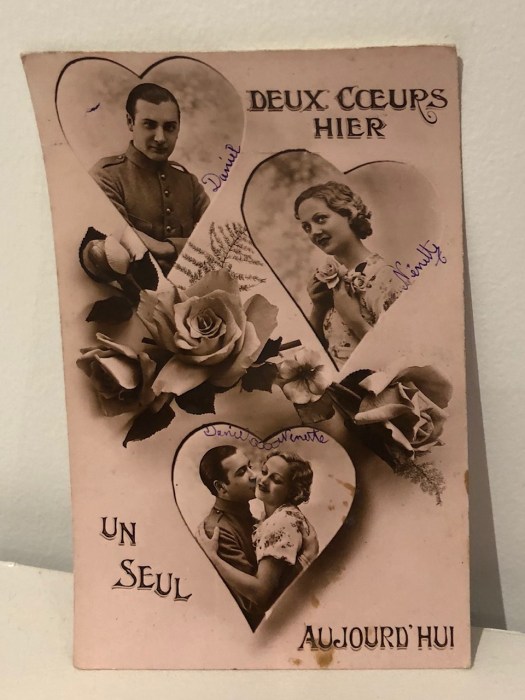 DEUX CŒURS
HIER
Daniel
Ninette
Daniel Ninette
UN
SEUL
AUJOURD'HUI